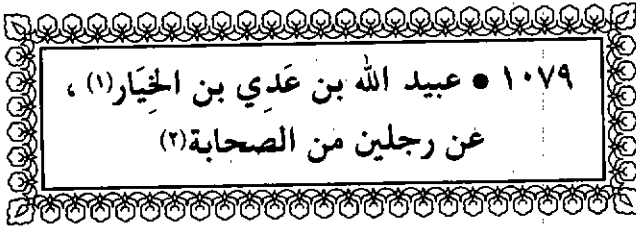 ١٠٧٩ • عبيد الله بن عَدِي بن الخِيَار(١) ،
عن رجلين من الصحابة(٢)